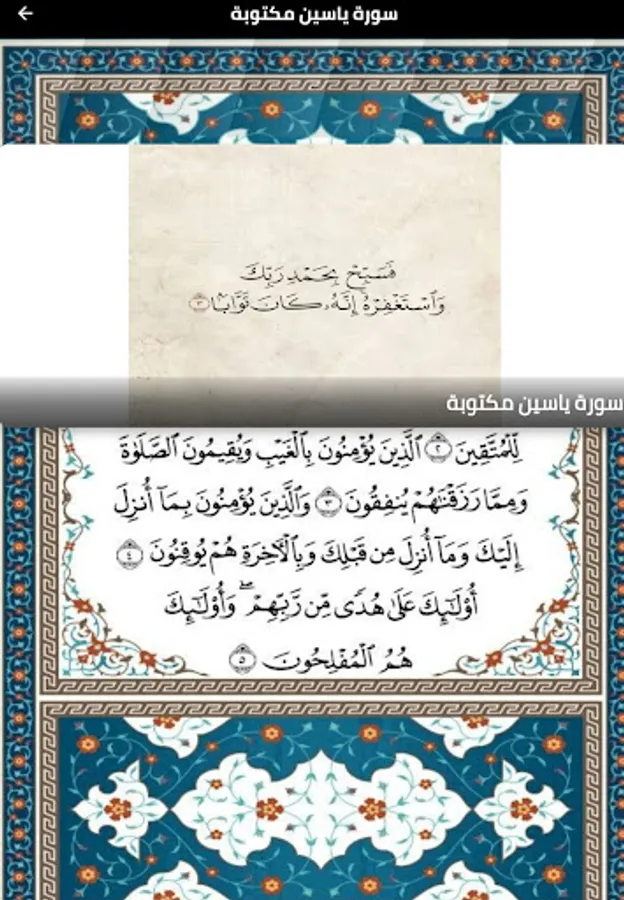 سورة ياسين مكتوبة
فَسَبِّحْ بِحَمْدِ رَبِّكَ
وَٱسْتَغْفِرْهُ إِنَّهُۥ كَانَ تَوَّابًۢا ٣
سورة ياسين مكتوبة
لِّلْمُتَّقِينَ ٢ ٱلَّذِينَ يُؤْمِنُونَ بِٱلْغَيْبِ وَيُقِيمُونَ ٱلصَّلَوٰةَ
وَمِمَّا رَزَقْنَٰهُمْ يُنفِقُونَ ٣ وَٱلَّذِينَ يُؤْمِنُونَ بِمَآ أُنزِلَ
إِلَيْكَ وَمَآ أُنزِلَ مِن قَبْلِكَ وَبِٱلْأَخِرَةِ هُمْ يُوقِنُونَ ٤
أُو۟لَٰٓئِكَ عَلَىٰ هُدًى مِّن رَّبِّهِمْ ۖ وَأُو۟لَٰٓئِكَ
هُمُ ٱلْمُفْلِحُونَ ٥